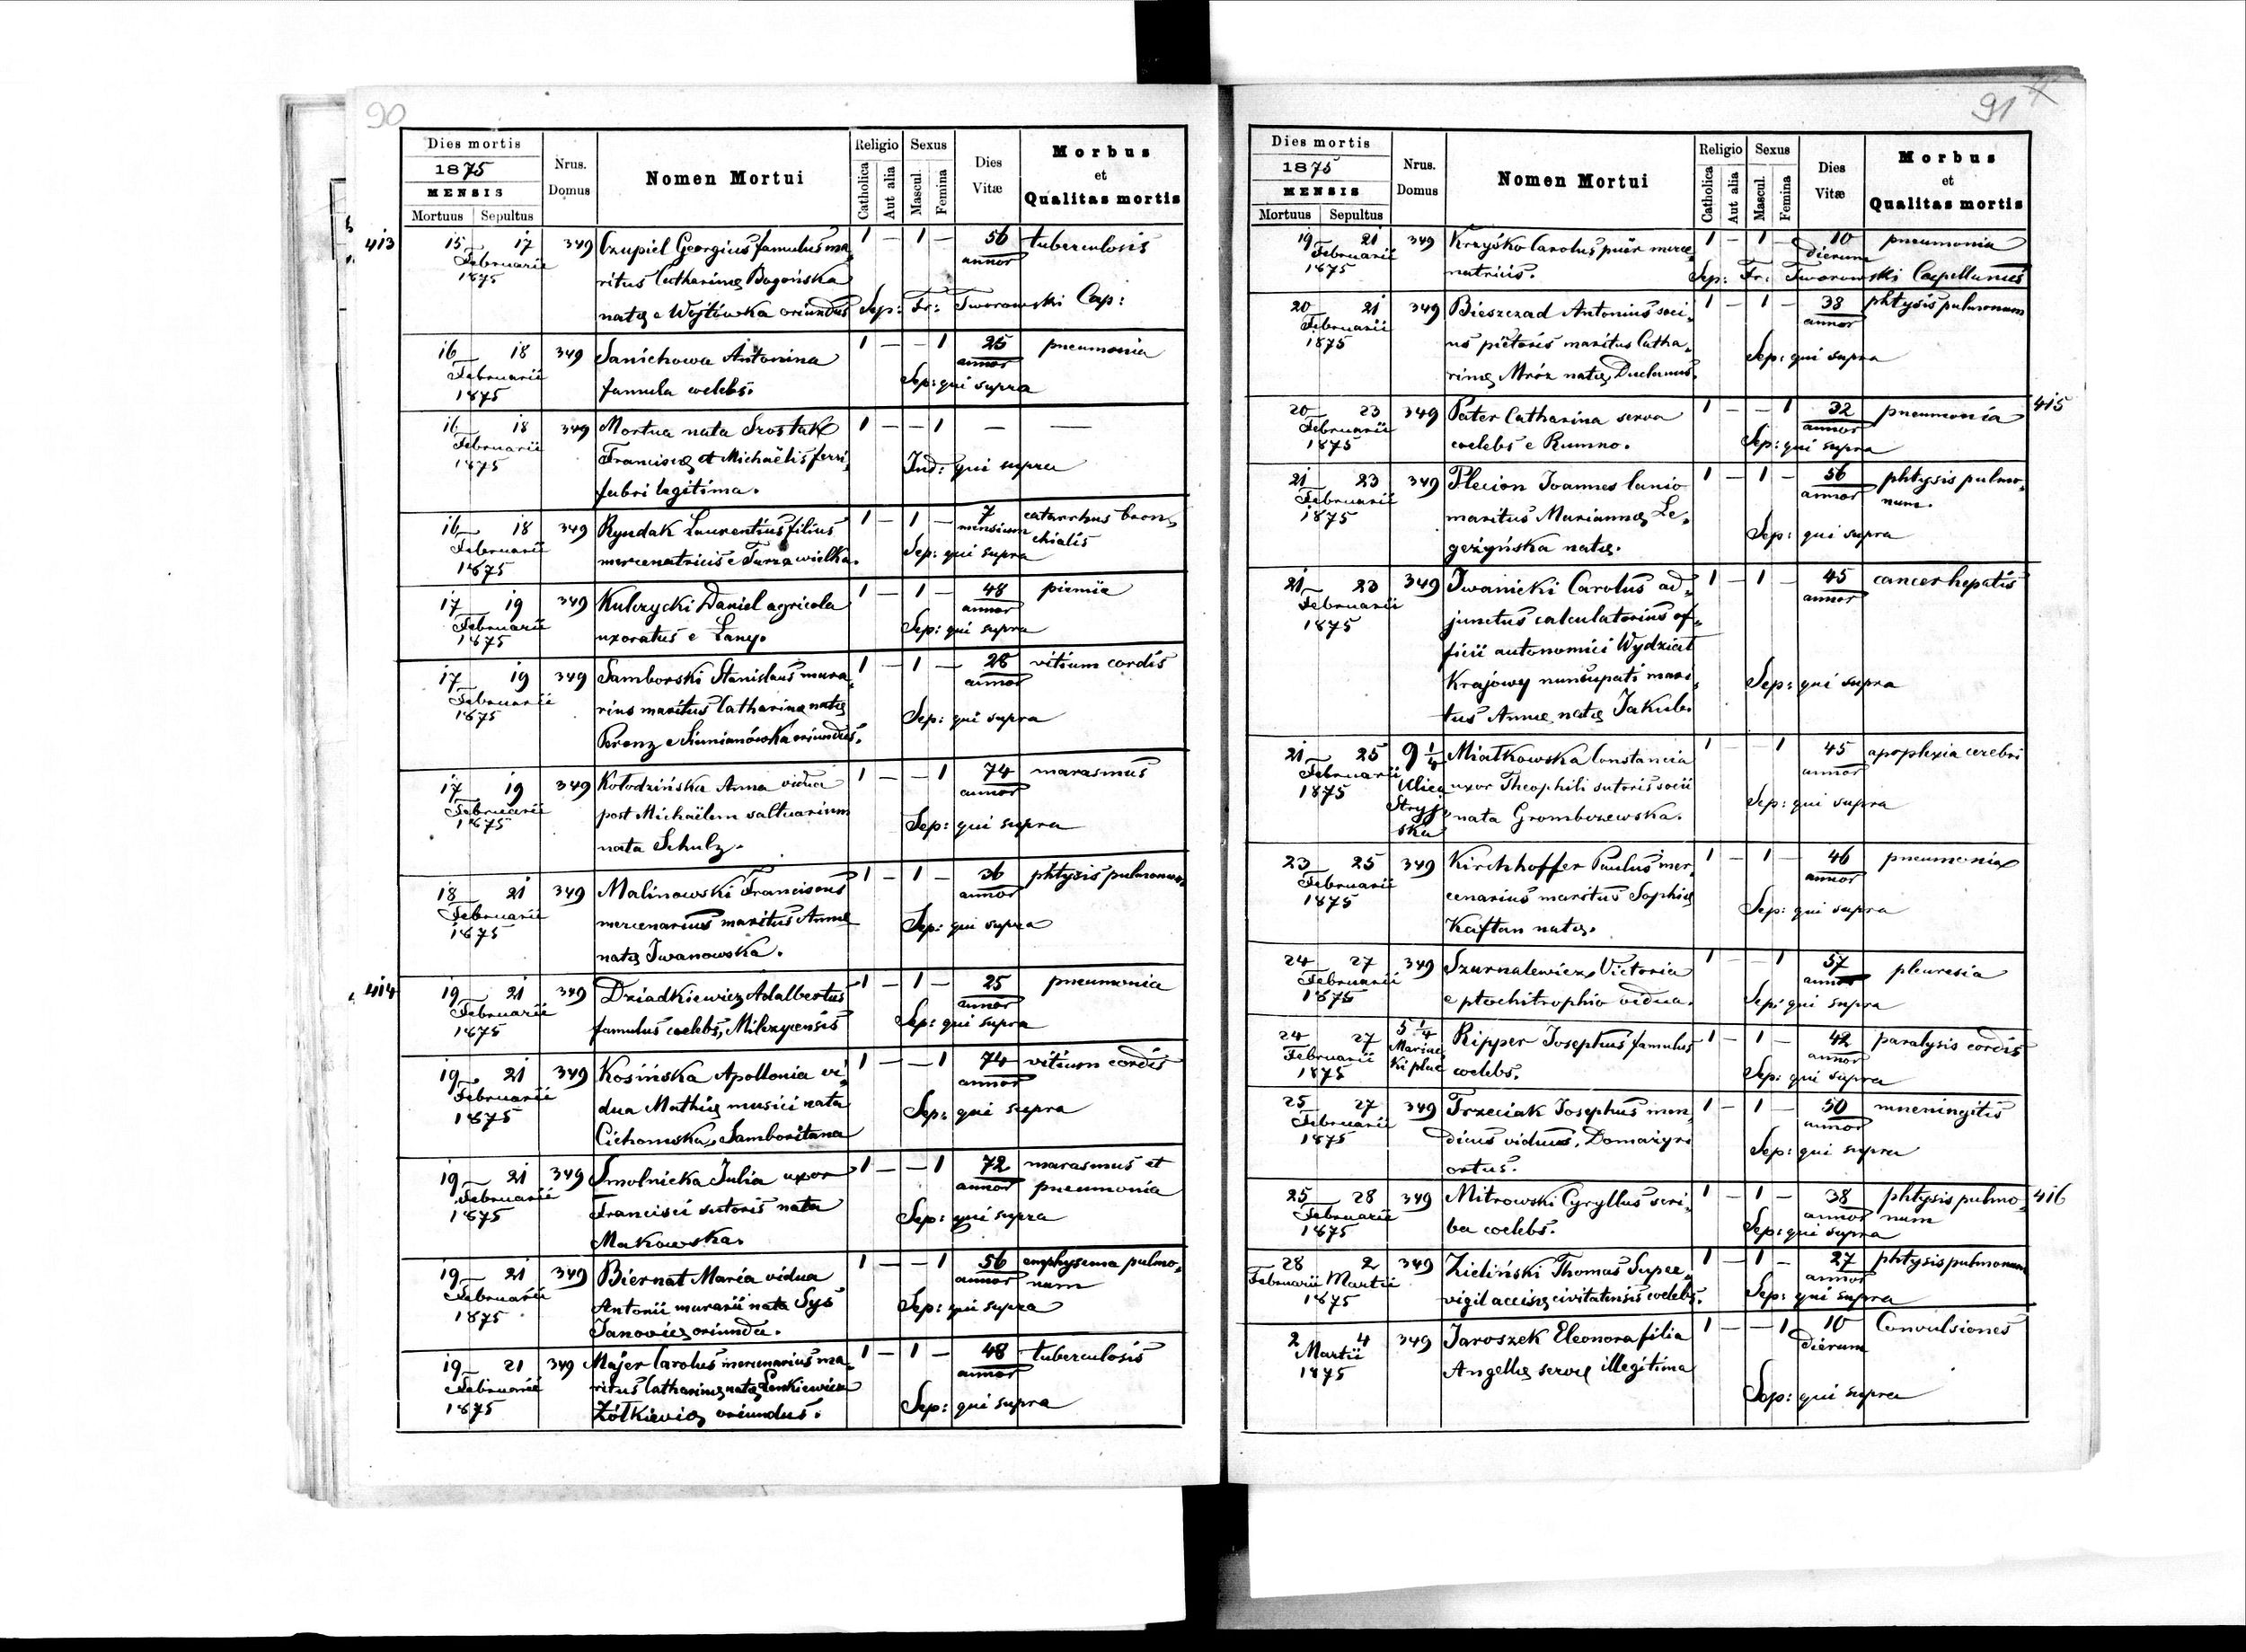 90
Dies mortis
1875
MENSIS
Mortuus Sepultus
Nrus. Domus
Nomen Mortui
Religio
Catholica
Aut alia
Sexus
Mascul.
Femina
Dies Vitæ
Morbus
et
Qualitas mortis
413 15 17 349 Czupiel Georgius famulus ma, 1 – 1 – 56 tuberculosis
Februarii ritus Catharinę Bagońska annor
1875 natę e Wojtówka oriundus Sep: Fr: Tworowski Cap:
16 18 349 Sanichowa Antonina 1 – – 1 25 pneumonia
Februarii famula coelebs. annor
1875 Sep: qui supra
16 18 349 Mortua nata Szostak 1 – – 1 — —
Februarii Franciscę et Michaëlis ferri,
1875 fabri legitima. Ind: qui supra
16 18 349 Ryndak Laurentius filius 1 – 1 – 7 catarrhus bron,
Februarii mercenatricis e Turza wielka. mensium chialis
1875 Sep: qui supra
17 19 349 Kulczycki Daniel agricola 1 – 1 – 48 piemia
Februarii uxoratus e Łany. annor
1875 Sep: qui supra
17 19 349 Samborski Stanislaus mura, 1 – 1 – 28 vitium cordis
Februarii rius maritus Catharinę natę annor
1875 Perenz e Simianówka oriundus. Sep: qui supra
17 19 349 Kołodzińska Anna vidua 1 – – 1 74 marasmus
Februarii post Michaëlem saltuarium annor
1875 nata Schulz. Sep: qui supra
18 21 349 Malinowski Franciscus 1 – 1 – 36 phtysis pulmonum
Februarii mercenarius maritus Annę annor
1875 natę Iwanowska. Sep: qui supra
414 19 21 349 Dziadkiewicz Adalbertus 1 – 1 – 25 pneumonia
Februarii famulus coelebs, Milczycensis annor
1875 Sep: qui supra
19 21 349 Kosińska Apollonia vi, 1 – – 1 74 vitium cordis
Februarii dua Mathię musici nata annor
1875 Cichomska, Samboritana Sep: qui supra
19 21 349 Smolnicka Julia uxor 1 – – 1 72 marasmus et
Februarii Francisci sutoris nata annor pneumonia
1875 Makowska. Sep: qui supra
19 21 349 Biernat Maria vidua 1 – – 1 56 emphysema pulmo,
Februarii Antonii murarii nata Sys annor num
1875 Janovicę oriunda. Sep: qui supra
19 21 349 Majer Carolus mercenarius ma, 1 – 1 – 48 tuberculosis
Februarii ritus Catharinę natę Lenkiewicz annor
1875 Żółkievię oriundus. Sep: qui supra
91
Dies mortis
1875
MENSIS
Mortuus Sepultus
Nrus. Domus
Nomen Mortui
Religio
Catholica
Aut alia
Sexus
Mascul.
Femina
Dies Vitæ
Morbus
et
Qualitas mortis
19 21 349 Krzyśko Carolus puer merce, 1 – 1 – 10 pneumonia
Februarii natricis. dierum
1875 Sep: Fr: Tworowski Capellanus
20 21 349 Bieszczad Antonius soci, 1 – 1 – 38 phtysis pulmonum
Februarii us pictoris maritus Catha, annor
1875 rinę Mróz natę, Duclanus. Sep: qui supra
20 23 349 Pater Catharina serva 1 – – 1 32 pneumonia 415
Februarii coelebs e Rumno. annor
1875 Sep: qui supra
21 23 349 Plecion Joannes lanio 1 – 1 – 56 phtysis pulmo,
Februarii maritus Mariannę Le, annor num.
1875 geżyńska natę. Sep: qui supra
21 23 349 Iwanicki Carolus ad, 1 – 1 – 45 cancer hepatis
Februarii junctus calculatorius of, annor
1875 ficii autonomici Wydział
Krajowy nuncupati mari, Sep: qui supra
tus Annę natę Jakub.
21 25 9 1/4 Miałkowska Constancia 1 – 1 45 apoplexia cerebri
Februarii Ulica uxor Theophili sutoris socii annor
1875 Stryj, nata Grombczewska. Sep: qui supra
ska
23 25 349 Kirchhoffer Paulus mer, 1 – 1 – 46 pneumonia
Februarii cenarius maritus Sophię annor
1875 Kaftan natę. Sep: qui supra
24 27 349 Szurnalewicz Victoria 1 – – 1 57 pleuresia
Februarii e ptochitrophio vidua. annor
1875 Sep: qui supra
24 27 5 1/4 Ripper Josephus famulus 1 – 1 – 42 paralysis cordis
Februarii Mariac coelebs. annor
1875 ki plac Sep: qui supra
25 27 349 Trzeciak Josephus men, 1 – 1 – 50 mneningitis
Februarii dicus viduus, Domażyri annor
1875 ortus. Sep: qui supra
25 28 349 Mitrowski Cyryllus scri, 1 – 1 – 38 phtysis pulmo, 416
Februarii ba coelebs. annor num
1875 Sep: qui supra
28 2 349 Zieliński Thomas Super, 1 – 1 – 27 phtysis pulmonum
Februarii Martii vigil accisę civitatensis coelebs. annor
1875 Sep: qui supra
2 4 349 Jaroszek Eleonora filia 1 – – 1 10 Convulsiones
Martii Angellę servę illegitima dierum
1875 Sep: qui supra